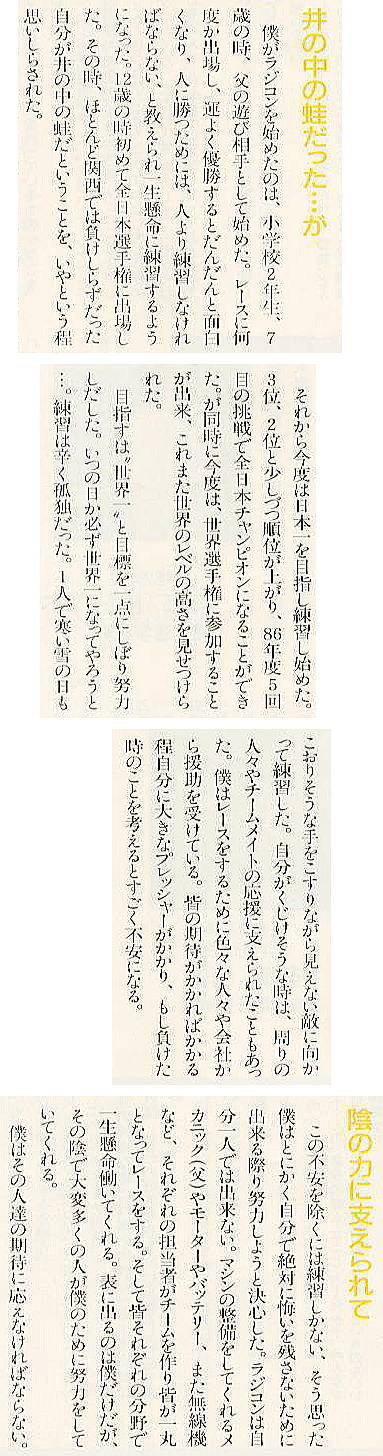 井の中の蛙だった…が
僕がラジコンを始めたのは、小学校2年生、7
歳の時、父の遊び相手として始めた。レースに何
度か出場し、運よく優勝するとだんだんと面白
くなり、人に勝つためには、人より練習しなけれ
ばならない、と教えられ一生懸命に練習するよう
になった。12歳の時初めて全日本選手権に出場し
た。その時、ほとんど関西では負けしらずだった
自分が井の中の蛙だということを、いやという程
思いしらされた。
それから今度は日本一を目指し練習し始めた。
3位、2位と少しづつ順位が上がり、86年度5回
目の挑戦で全日本チャンピオンになることができ
た。が同時に今度は、世界選手権に参加すること
が出来、これまた世界のレベルの高さを見せつけら
れた。
目指すは〝世界一〟と目標を一点にしぼり努力
しだした。いつの日か必ず世界一になってやろうと
…。練習は辛く孤独だった。1人で寒い雪の日も
こおりそうな手をこすりながら見えない敵に向か
って練習した。自分がくじけそうな時は、周りの
人々やチームメイトの応援に支えられたこともあっ
た。僕はレースをするために色々な人々や会社か
ら援助を受けている。皆の期待がかかればかかる
程自分に大きなプレッシャーがかかり、もし負けた
時のことを考えるとすごく不安になる。
陰の力に支えられて
この不安を除くには練習しかない、そう思った
僕はとにかく自分で絶対に悔いを残さないために
出来る際り努力しようと決心した。ラジコンは自
分一人では出来ない。マシンの整備をしてくれるメ
カニック(父)やモーターやバッテリー、また無線機
など、それぞれの担当者がチームを作り皆が一丸
となってレースをする。そして皆それぞれの分野で
一生懸命働いてくれる。表に出るのは僕だけだが、
その陰で大変多くの人が僕のために努力をして
いてくれる。
僕はその人達の期待に応えなければならない。